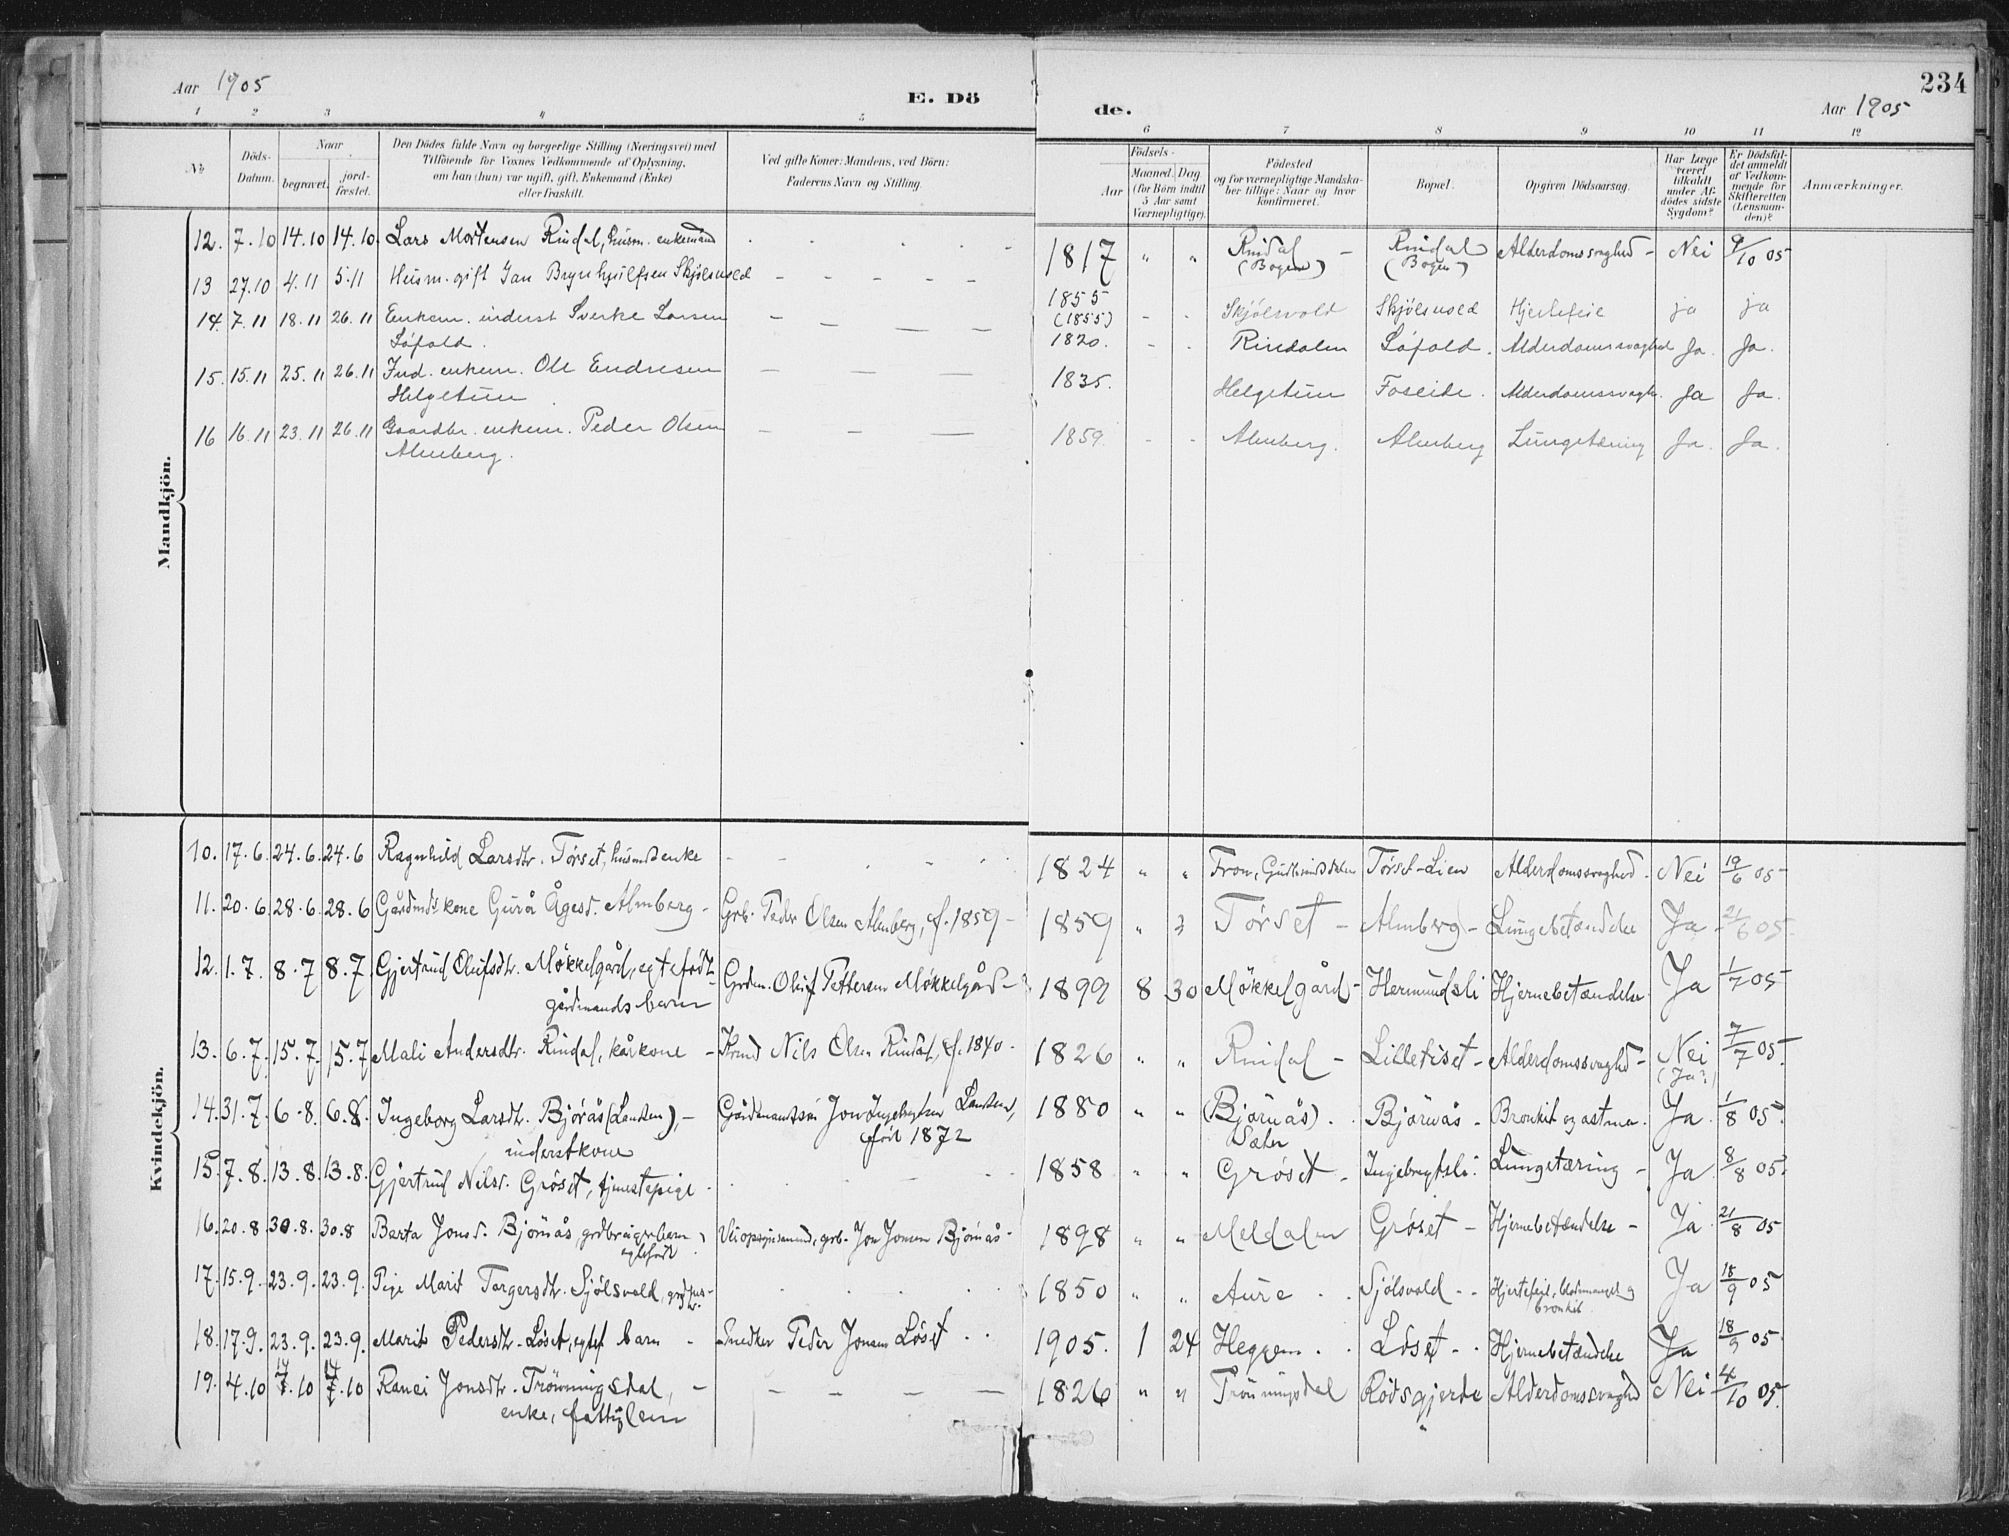 Aar 1905
E. Dö
de.
234
Aar 1905
1 2 3 4 5 6 7 8 9 10 11 12
No
Döds-Datum.
Naar
begravet.
jord-fæstet.
Den Dödes fulde Navn og borgerlige Stilling (Næringsvei) med
Tilföiende for Voxnes Vedkommende af Oplysning,
om han (hun) var ugift, gift, Enkemand (Enke)
eller fraskilt.
Ved gifte Koner: Mandens, ved Börn:
Faderens Navn og Stilling.
Födsels-
Aar
Maaned. Dag
(for Börn indtil
5 Aar samt
Værnepligtige).
Födested
og for værnepligtige Mandska-
ber tillige: Naar og hvor
konfirmeret.
Bopæl.
Opgiven Dödsaarsag.
Har Læge
været
tilkaldt
under Af-
dödes sidste
Sygdom?
Er Dödsfal-
det anmeldt
af Vedkom-
mende for
Skifteretten
(Lensman-
den)?
Anmærkninger.
Mandkjön.
12. 7.10 14.10 14.10 Lars Mortensen Rindal, husm. enkemand 1817 " " Rindal (Bogen) Rindal (Bogen) Alderdomssvaghed - Nei 9/10 05
13 27.10 4.11 5.11 Husm. gift Jan Brynhjulfsen Skjölsvold - - - - - 1855 (1855) - - Skjölsvold Skjölsvold Hjertefeie ja ja
14. 7.11 18.11 26.11 Enkem. inderst Sverke Larsen Löfald. - - - - 1820. - - Rindalen Löfald. Alderdomssvaghed Ja. Ja.
15. 15.11 25.11 26.11 Ind. enkem. Ole Endresen Helgetun - - - 1835. Helgetun Foseide. Alderdomssvagh. Ja Ja.
16 16.11 23.11 26.11 Gaardbr. enkem. Peder Olsen Almberg. - - - 1859. - - Almberg. Almberg Lungetæring Ja. Ja.
Kvindekjön.
10. 17.6. 24.6. 24.6 Ragnhild Larsdtr. Tørset, husmdsenke 1824 " " Fron, Gudbrandsdalen Tørset-Lien Alderdomssvaghed. Nei 19/6 05
11. 20.6. 28.6. 28.6 Gårdmds kone Gurå Ågesd. Almberg - Grb. Peder Olsen Almberg, f. 1859 - 1859 " " Tørset - Almberg - Lungebetændelse Ja 21/6 05.
12. 1.7. 8.7 8.7. Gjertrud Olufsdtr. Møkkelgård, egtefødt gårdmands barn Grdm. Oluf Pettersen Møkkelgård - 1899 8 30 Møkkelgård - Hermundsli Hjernebetændelse. Ja 1/7 05
13. 6.7. 15.7. 15.7 Mali Andersdtr. Rindal, kårkone - Kmd Nils Olsen Rindal, f. 1840 - 1826 " " Rindal - Lilletiset - Alderdomssvaghd - Nei (Ja?) 7/7 05.
14. 31.7. 6.8. 6.8. Ingeborg Larsdtr. Bjørås (Lansen), - inderstkone Gårdmandssøn Jon Ingebrigtsen Lansen, født 1872 1880 " " (Bjørnås). Sæter Bjørnås - Bronkit og astma. Ja. 1/8 05.
15. 7.8. 13.8. 13.8. Gjertrud Nilsd. Grøset, tjenestepige 1858 " " Grøset - Ingebrigtsli. Lungetæring - Ja. 8/8 05.
16. 20.8 30.8. 30.8 Berta Jonsd. Bjørnås, egtefødt Veiopsynsmand, grb. Jon Jonsen Bjørnås - 1898 " " Meldalen Grøset - Hjernebetændelse - Ja. 21/8 05
17. 15.9. 23.9. 23.9. Pige Marit Torgersdtr. Sjølsvold, 1850 " " Aure Sjølsvold Hjertefeil, blodmangel og bronkit. Ja 18/9 05
18. 17.9. 23.9. 23.9. Marit Pedersdtr. Løset, egtef. barn - Snedker Peder Jonsen Løset 1905. 1 24 Heggem Løset Hjernebetændelse Ja 18/9 05
19. 4.10 7.10 7.10 Ranei Jonsdtr. Trønningsdal, - enke, fattiglem - - - - 1826 " " Trønningsdal Rødsgjerde Alderdomssvaghd Nei 4/10 05.